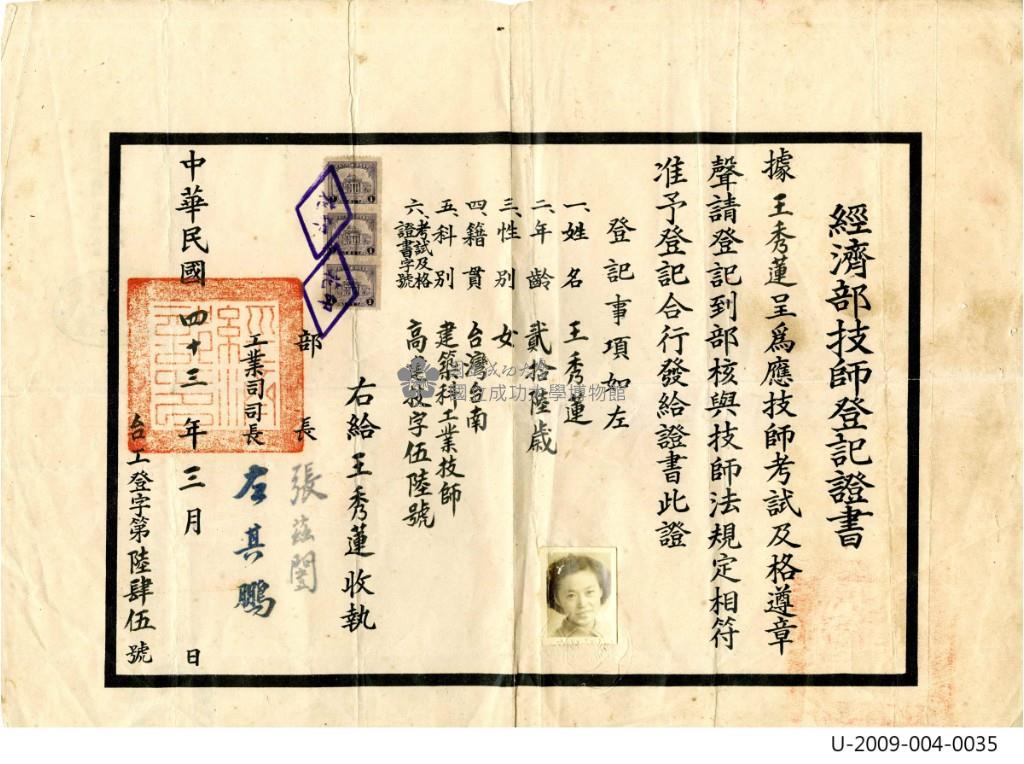 經濟部技師登記證書
據王秀蓮呈爲應技師考試及格遵章
聲請登記到部核與技師法規定相符
准予登記合行發給證書此證
登記事項如左
一.姓名 王秀蓮
二.年齡 貳拾陸歲
三.性別 女
四.籍貫 台灣台南
五.科別 建築科工業技師
六.考試及格證書字號 高 字伍陸號
右給王秀蓮收執
部長 張茲闓
工業司司長 左其鵬
中華民國四十三年三月 日
台工登字第陸肆伍號
國立成功大學博物館
U-2009-004-0035